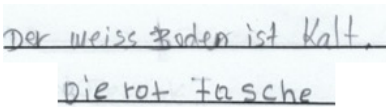 Der weiss Boden ist Kalt.
Die rot tasche